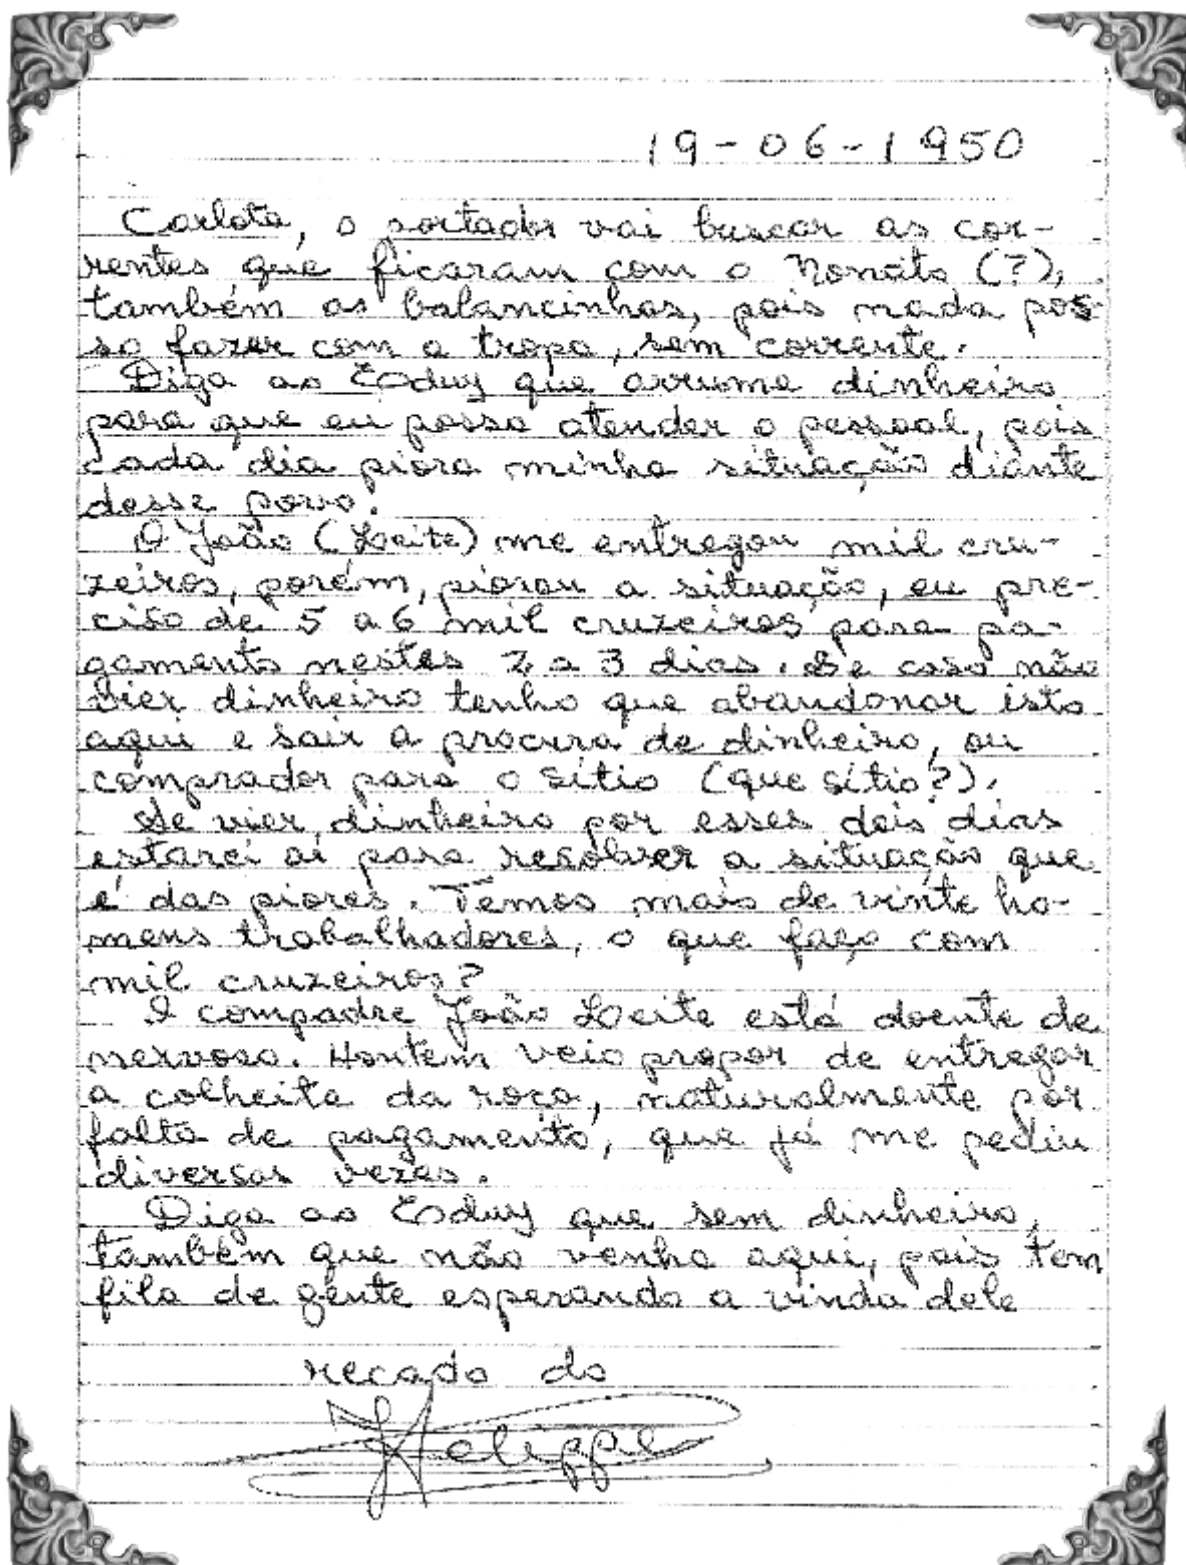 19-06-1950
Carlota, o portador vai buscar as cor-
rentes que ficaram com o Nonato (?),
também as balancinhas, pois nada pos-
so fazer com a tropa, sem corrente.
Diga ao Eduy que arrume dinheiro
para que eu possa atender o pessoal, pois
cada dia piora minha situação diante
desse povo.
O João (Leite) me entregou mil cru-
zeiros, porém, piorou a situação, eu pre-
ciso de 5 a 6 mil cruzeiros para pa-
gamento nestes 2 a 3 dias. Se caso não
vier dinheiro tenho que abandonar isto
aqui e sair a procura de dinheiro, ou
comprador para o sítio (que sítio?).
Se vier dinheiro por esses dois dias
estarei aí para resolver a situação que
é das piores. Temos mais de vinte ho-
mens trabalhadores, o que faço com
mil cruzeiros?
O compadre João Leite está doente de
nervoso. Hontem veio propor de entregar
a colheita da roça, naturalmente por
falta de pagamento, que já me pediu
diversas vezes.
Diga ao Eduy que sem dinheiro,
também que não venha aqui, pois tem
fila de gente esperando a vinda dele
recado do
Felippe